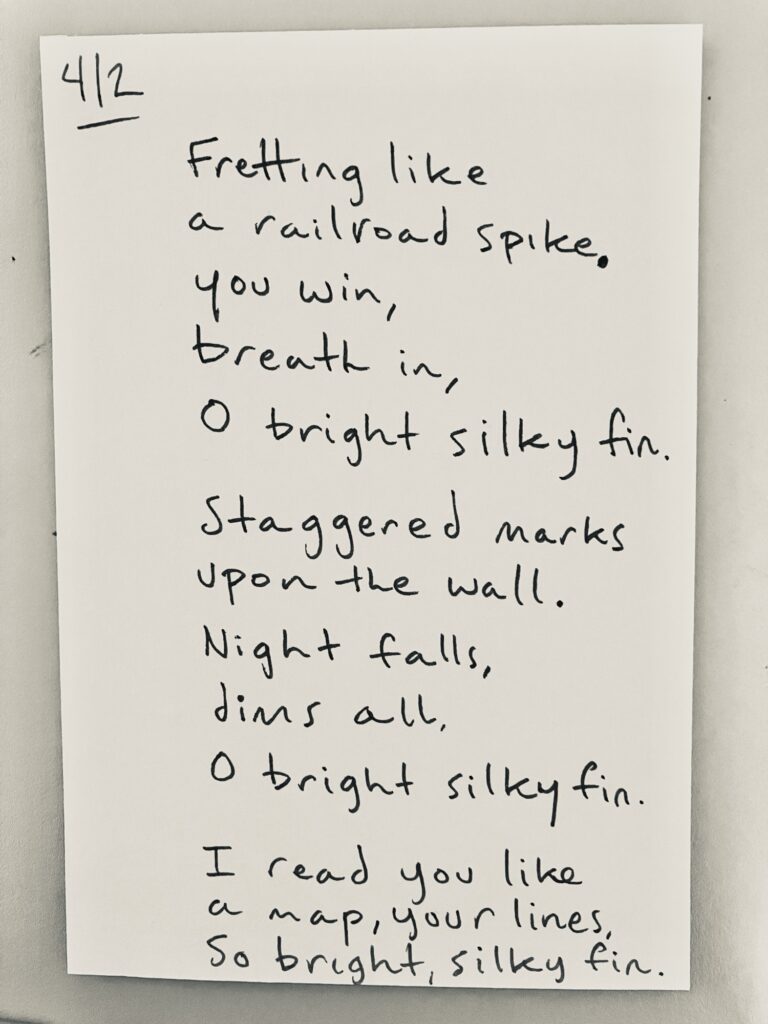 4/2
Fretting like
a railroad spike.
you win,
breath in,
O bright silky fin.
Staggered marks
upon the wall.
Night falls,
dims all,
O bright silky fin.
I read you like
a map, your lines,
So bright, silky fin.